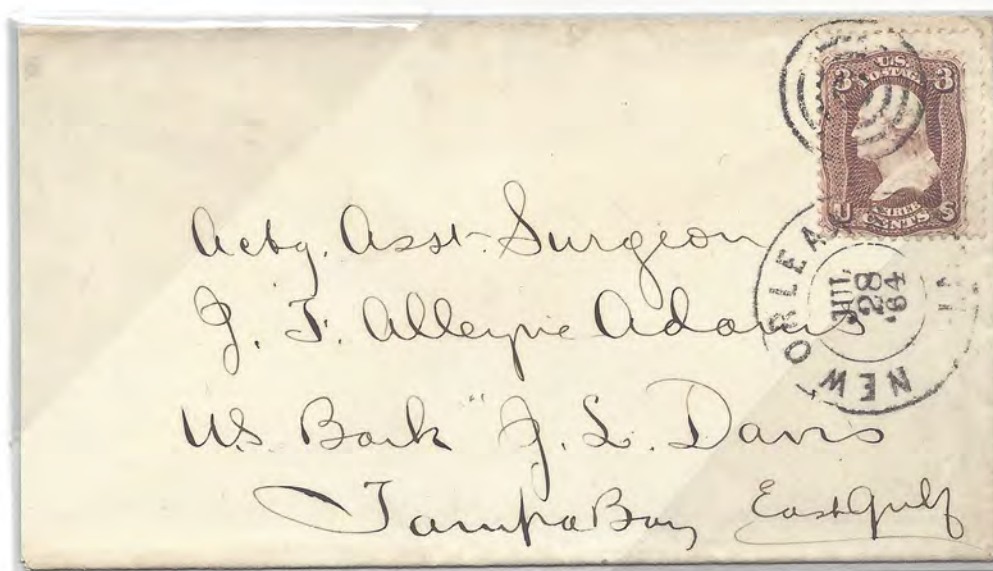 3 U.S. 3
POSTAGE
U THREE S
CENTS
NEW ORLEA
JUL
28
'64
Actg. Asst. Surgeon
J. F. Alleyne Adams
U.S. Bark "J. L. Davis
Tampa Bay East Gulf